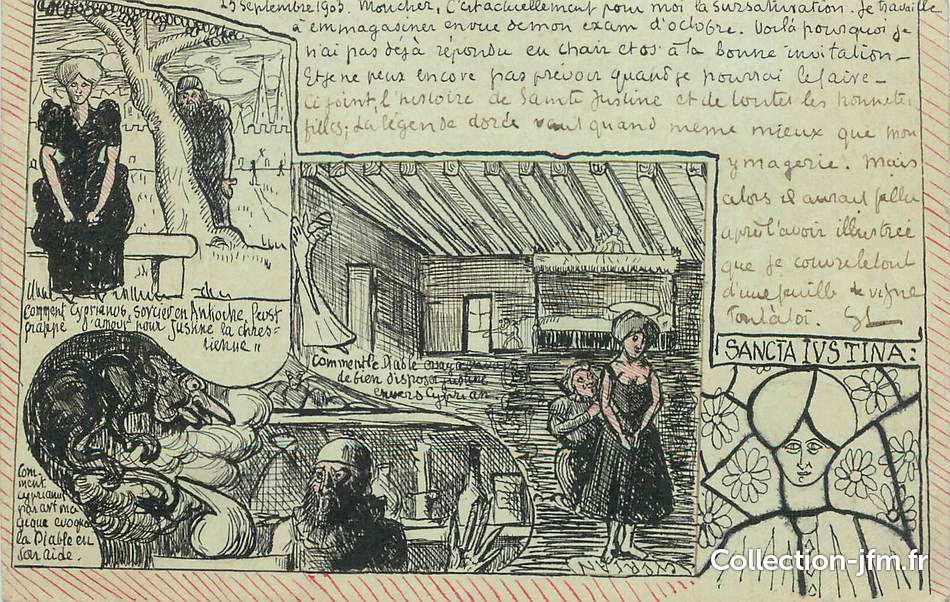 25 septembre 1903. Moncher, C'est actuellement pour moi la sursaturation. Je travaille
à emmagasiner en vue de mon exam d'octobre. Voilà pourquoi je
n'ai pas dejà répondu en chair et os à la Bonne invitation –
Et je ne peux encore pas prévoir quand je pourrai le faire –
Ci joint, l'histoire de Sainte Justine et de toutes les honnetes
filles; La légende dorée vaut quand même mieux que mon
ymagerie. Mais
alors il aurait fallu
après l'avoir illustrée
que je couvre le tout
d'une feuille de vigne
Tontàtoi.
Comment Cyprianos, sorcier en Antioche, feust
frappé d'amour pour Justine la chres=
tienne"
comment le Diable
de bien disposer Justine
envers Cyprian
SANCTA IVSTINA:
Com-
ment
Cyprianus
par art ma
gique evoqua
la Diable en
son aide.
Collection-jfm.fr